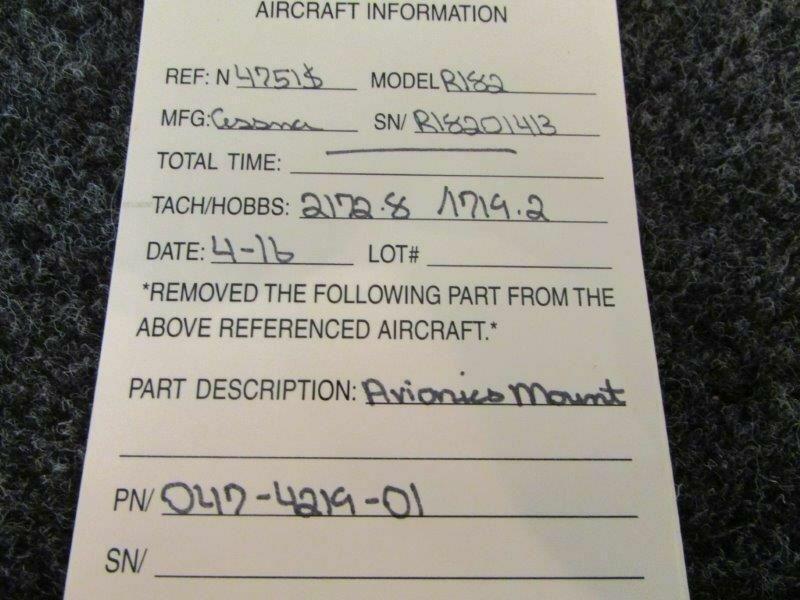 AIRCRAFT INFORMATION
REF: N 4751S MODEL R182
MFG: Cessna SN/ R18201413
TOTAL TIME:
TACH/HOBBS: 2172.8 /1719.2
DATE: 4-16 LOT#
*REMOVED THE FOLLOWING PART FROM THE
ABOVE REFERENCED AIRCRAFT.*
PART DESCRIPTION: Avionics Mount
PN/ 047-4219-01
SN/